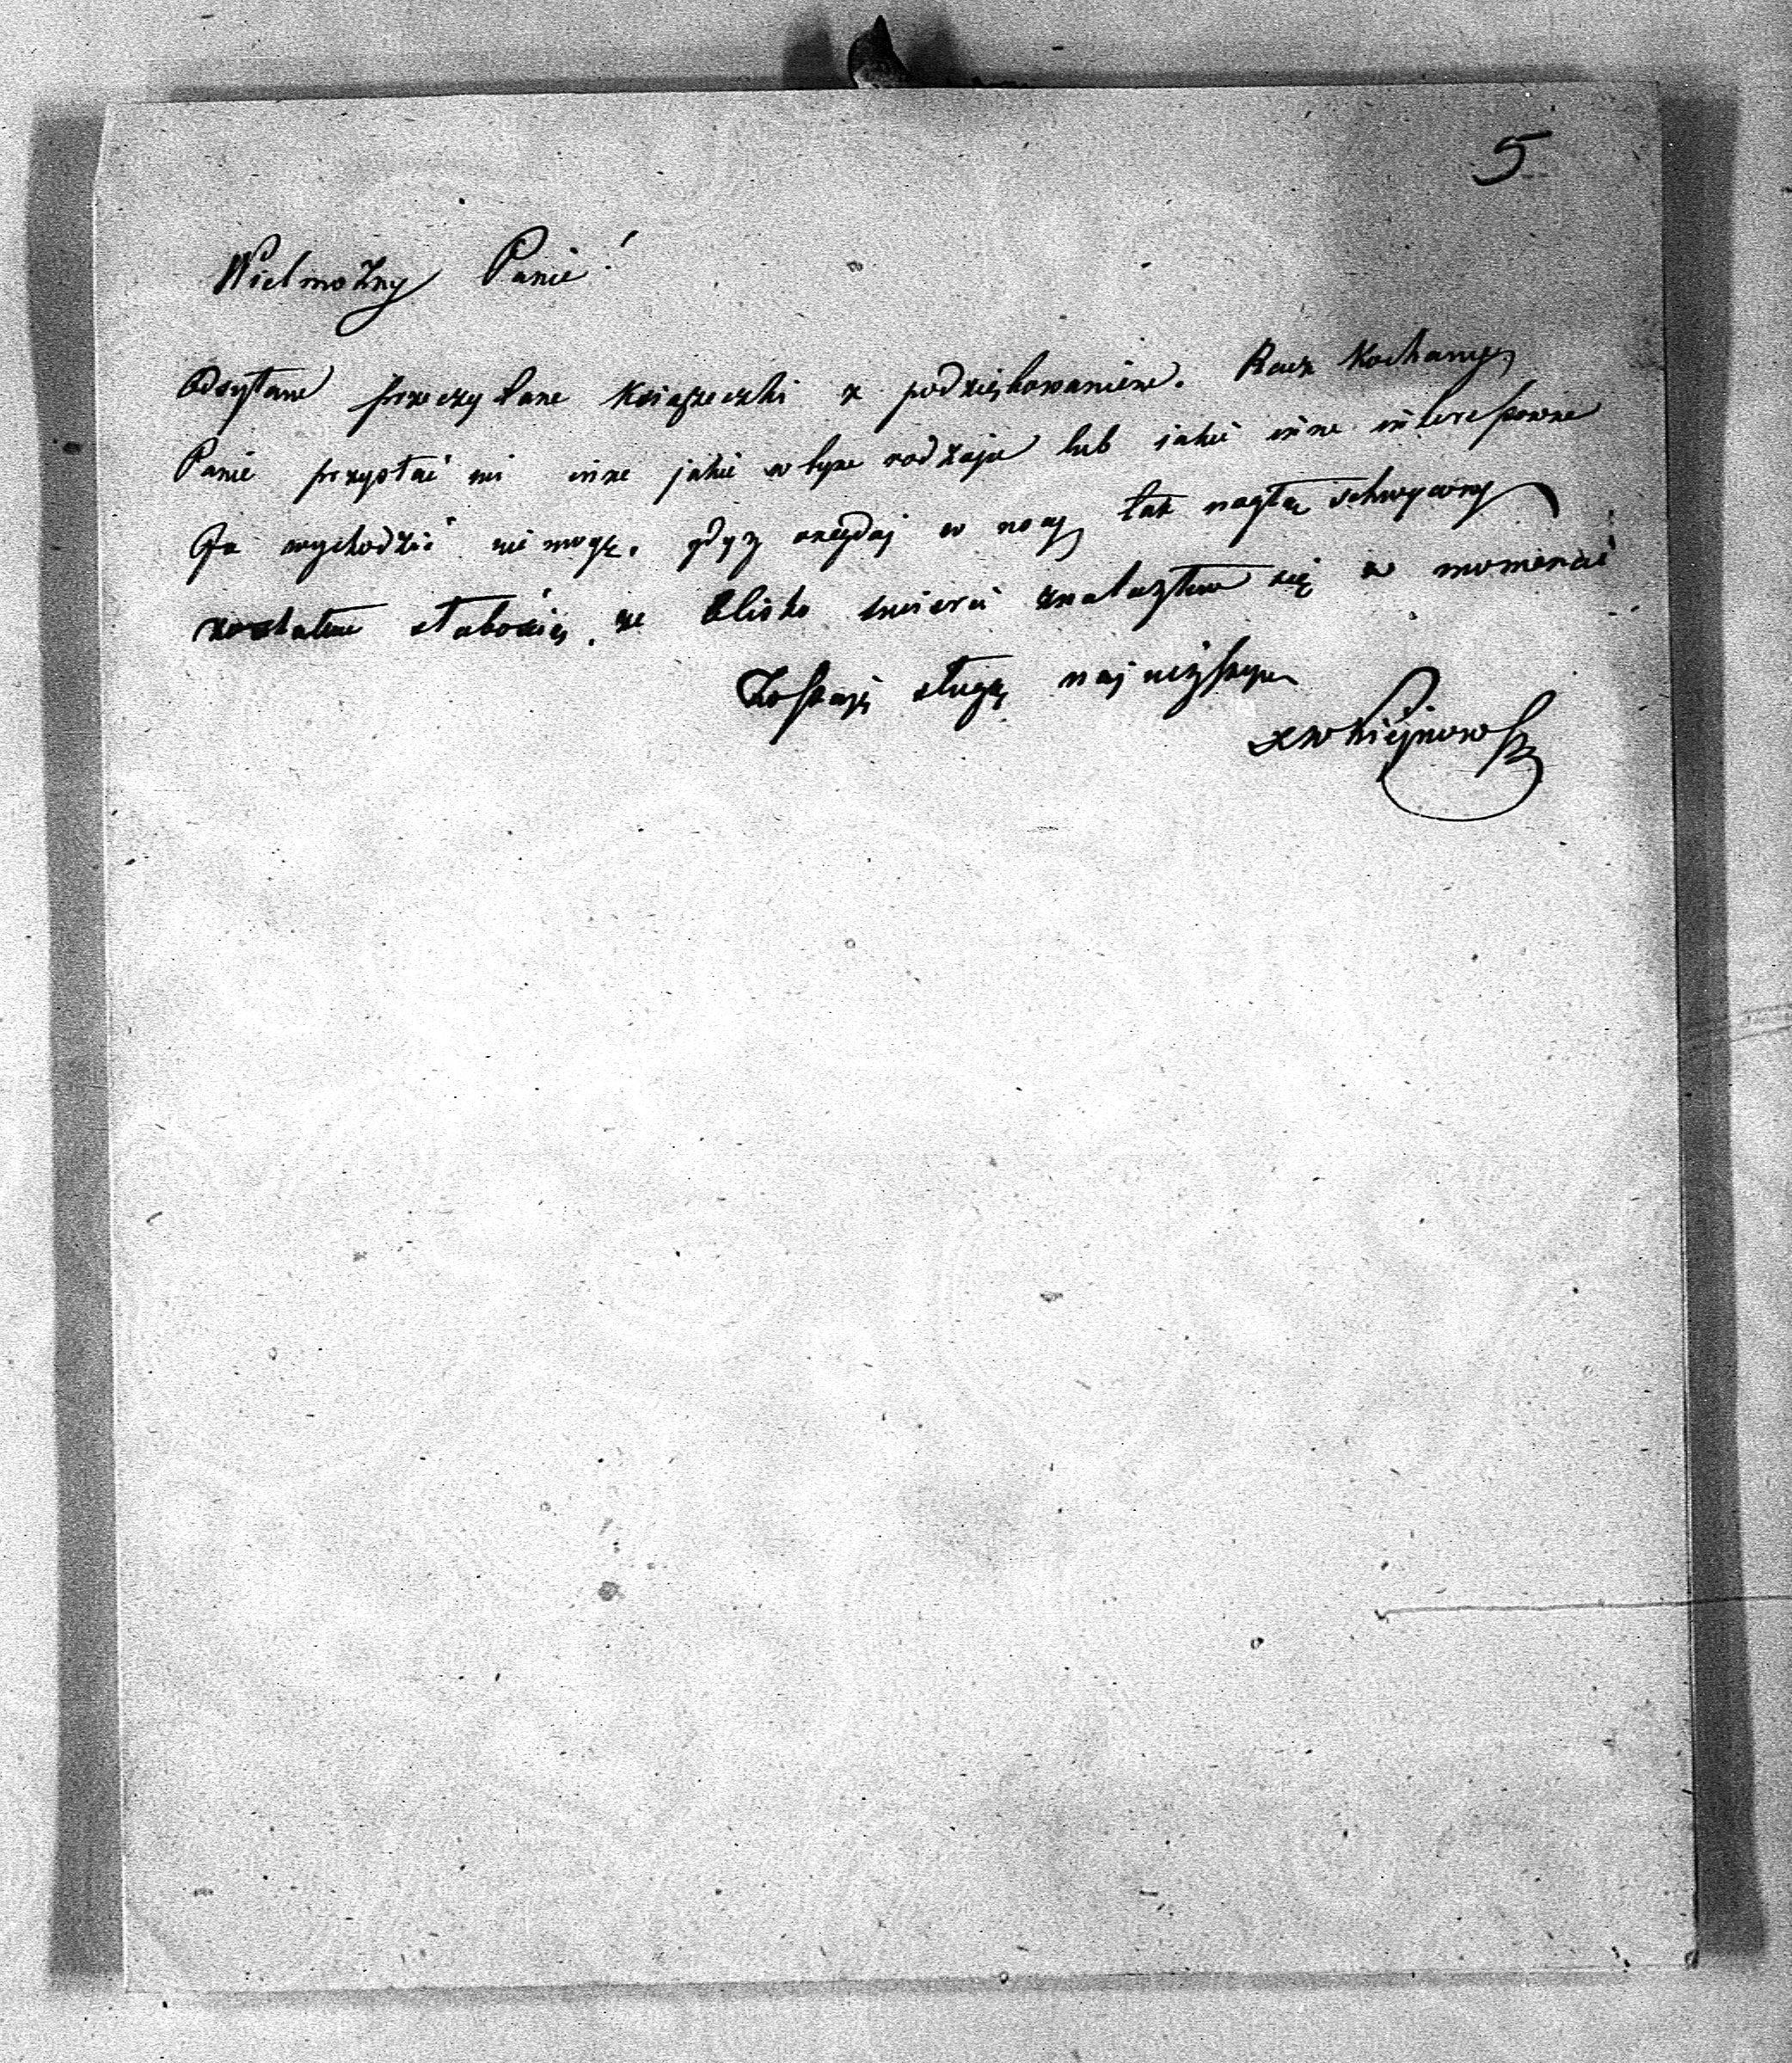 5
Wielmożny Panie!
Odsyłam przeczytane Książeczki z podziękowaniem. Racz Kochany
Panie przysłać mi inne jakie w tym rodzaju lub jakie inne interessowne
Ja wychodzić nie mogę, gdyż onegdaj w nocy tak nagłą schwycony
zostałem słabością, że blisko śmierci znalazłem się w momencie
Zostaję sługą najniższym